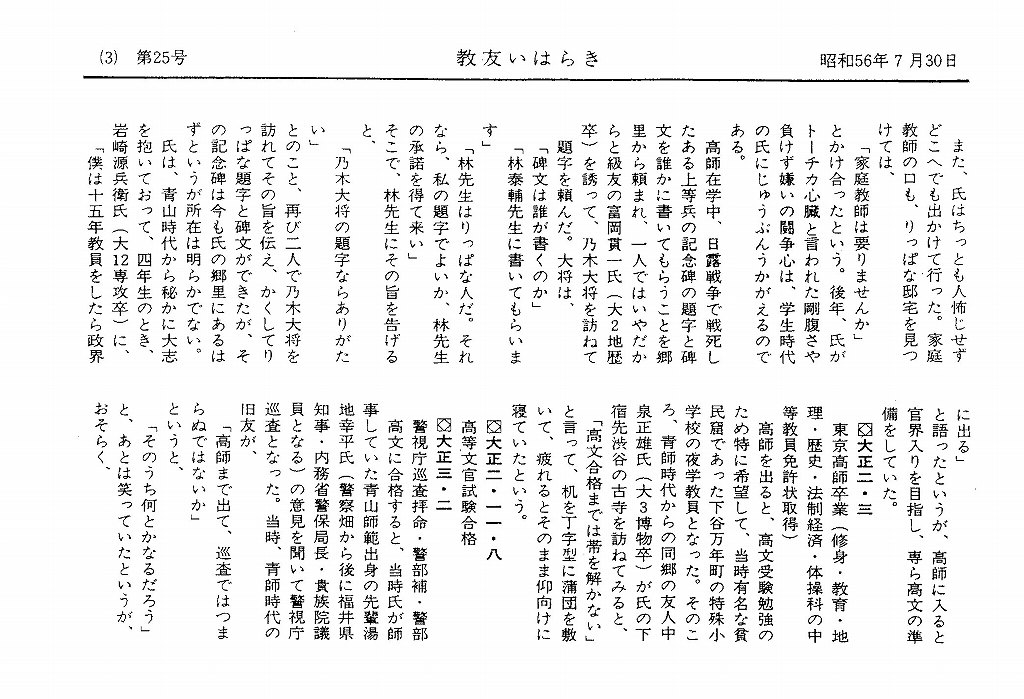 (3) 第25号
教友いはらき
昭和56年7月30日
また、氏はちっとも人怖じせず
どこへでも出かけて行った。家庭
教師の口も、りっぱな邸宅を見つ
けては、
「家庭教師は要りませんか」
とかけ合ったという。後年、氏が
トーチカ心臓と言われた剛腹さや
負けず嫌いの闘争心は、学生時代
の氏にじゅうぶんうかがえるので
ある。
高師在学中、日露戦争で戦死し
たある上等兵の記念碑の題字と碑
文を誰かに書いてもらうことを郷
里から頼まれ、一人ではいやだか
らと級友の富岡貫一氏(大2地歴
卒)を誘って、乃木大将を訪ねて
題字を頼んだ。大将は、
「碑文は誰が書くのか」
「林泰輔先生に書いてもらいま
す」
「林先生はりっぱな人だ。それ
なら、私の題字でよいか、林先生
の承諾を得て来い」
そこで、林先生にその旨を告げる
と、
「乃木大将の題字ならありがた
い」
とのこと、再び二人で乃木大将を
訪れてその旨を伝え、かくしてり
っぱな題字と碑文ができたが、そ
の記念碑は今も氏の郷里にあるは
ずというが所在は明らかでない。
氏は、青山時代から秘かに大志
を抱いておって、四年生のとき、
岩崎源兵衛氏(大12専攻卒)に、
「僕は十五年教員をしたら政界
に出る」
と語ったというが、高師に入ると
官界入りを目指し、専ら高文の準
備をしていた。
◇大正二・三
東京高師卒業(修身・教育・地
理・歴史・法制経済・体操科の中
等教員免許状取得)
高師を出ると、高文受験勉強の
ため特に希望して、当時有名な貧
民窟であった下谷万年町の特殊小
学校の夜学教員となった。そのこ
ろ、青師時代からの同郷の友人中
泉正雄氏(大3博物卒)が氏の下
宿先渋谷の古寺を訪ねてみると、
「高文合格までは帯を解かない」
と言って、机を丁字型に蒲団を敷
いて、疲れるとそのまま仰向けに
寝ていたという。
◇大正二・一一・八
高等文官試験合格
◇大正三・二
警視庁巡査拝命・警部補・警部
高文に合格すると、当時氏が師
事していた青山師範出身の先輩湯
地幸平氏(警察畑から後に福井県
知事・内務省警保局長・貴族院議
員となる)の意見を聞いて警視庁
巡査となった。当時、青師時代の
旧友が、
「高師まで出て、巡査ではつま
らぬではないか」
というと、
「そのうち何とかなるだろう」
と、あとは笑っていたというが、
おそらく、